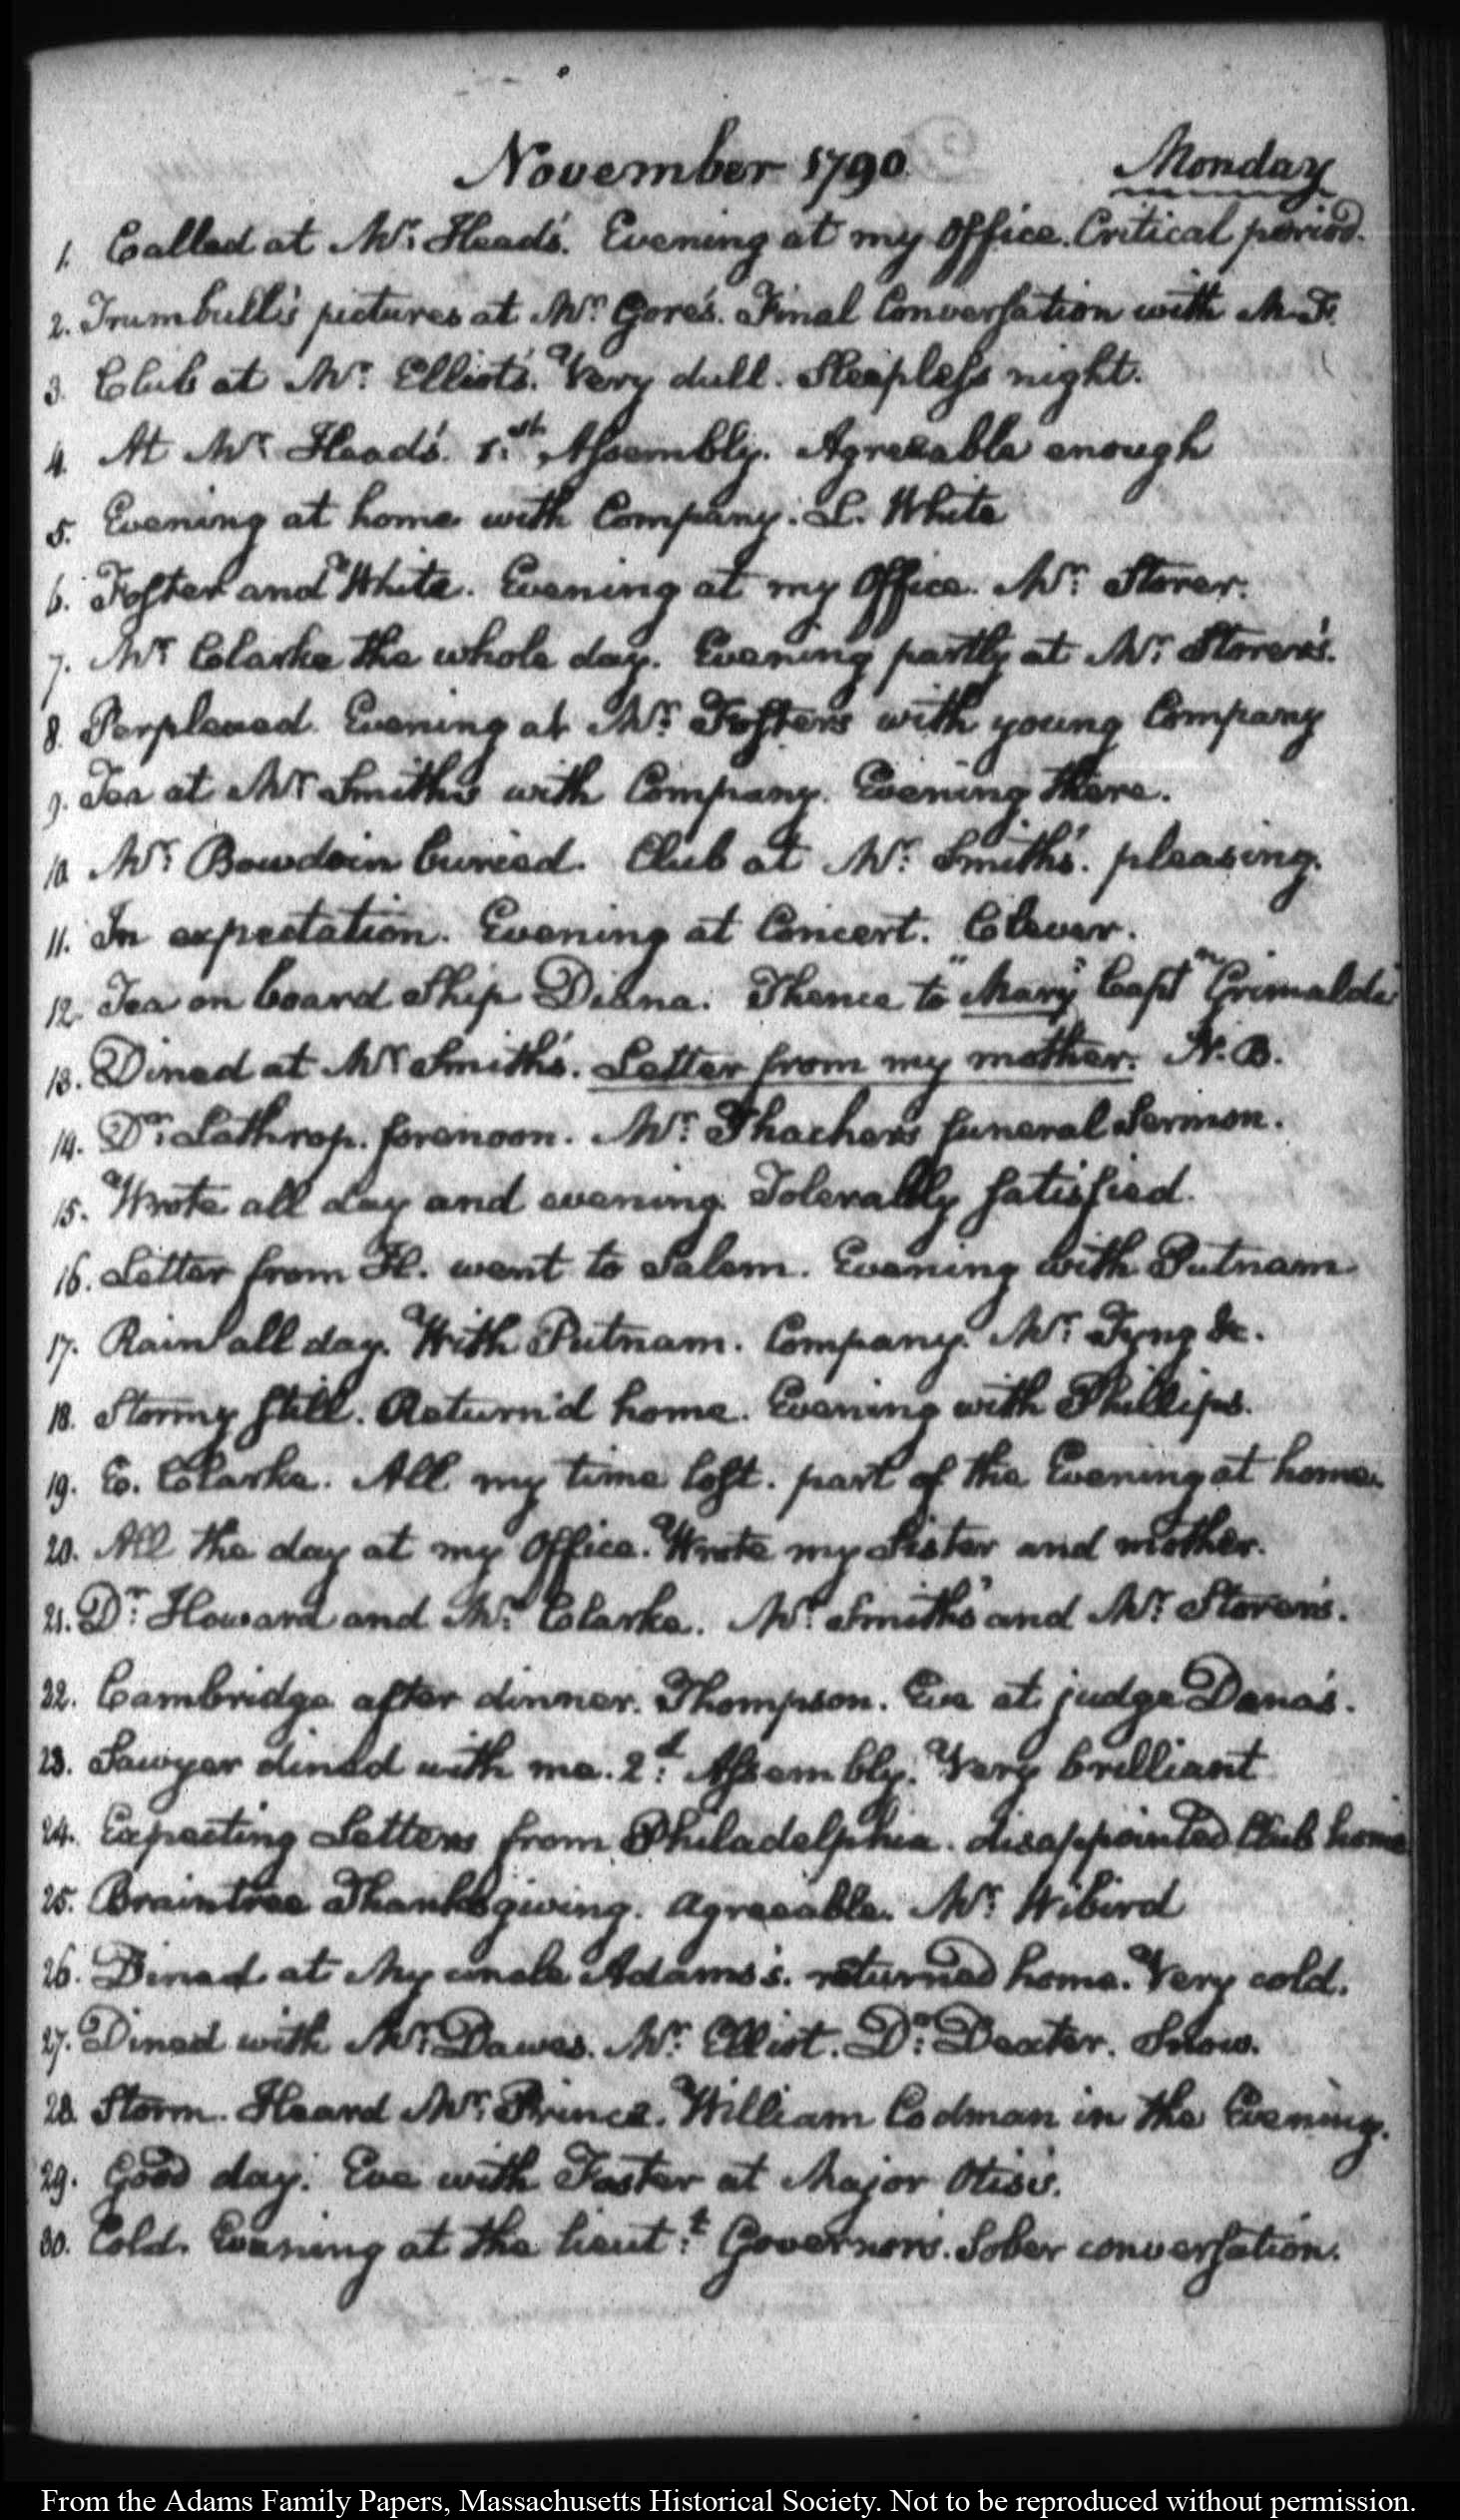 November 1790. Monday
1. Called at Mr. Head's. Evening at my Office. Critical period.
2. Trumbull's pictures at Mr. Gore's. Final Conversation with M.F.
3. Club at Mr. Elliot's. Very dull. Sleepless night.
4. At Mr. Head's. 1.st Assembly. Agreeable enough
5. Evening at home with Company. L. White
6. Foster and White. Evening at my Office. Mr. Storer.
7. Mr. Clarke the whole day. Evening partly at Mr. Storer's.
8. Perplexed. Evening at Mr. Foster's with young Company
9. Tea at Mr. Smith's with Company. Evening there.
10. Mr. Bowdoin buried. Club at Mr. Smith's. pleasing.
11. In expectation. Evening at Concert. Clever.
12. Tea on board Ship Diana. Thence to "Mary" Captn Grimalde
13. Dined at Mr. Smith's. Letter from my mother. N.B.
14. Dr. Lathrop. forenoon. Mr. Thacher's funeral Sermon.
15. Wrote all day and evening. Tolerably satisfied.
16. Letter from H. went to Salem. Evening with Putnam
17. Rain all day. With Putnam. Company. Mr. Tyng &c.
18. Stormy still. Return'd home. Evening with Phillips.
19. E. Clarke. All my time lost. part of the Evening at home.
20. All the day at my Office. Wrote my Sister and mother.
21. Dr. Howard and Mr. Clarke. Mr. Smith's and Mr. Storer's.
22. Cambridge after dinner. Thompson. Eve at judge Dana's.
23. Sawyer dined with me. 2.d Assembly. Very brilliant
24. Expecting Letters from Philadelphia. disappointed Club home
25. Braintree Thanksgiving. agreeable. Mr. Wibird
26. Dined at My uncle Adams's. returned home. Very cold.
27. Dined with Mr. Dawes. Mr. Elliot. Dr. Dexter. Snow.
28. Storm. Heard Mr. Prince. William Codman in the Evening.
29. Good day. Eve with Foster at Major Otis's.
30. Cold. Evening at the lieut.t Governor's. Sober conversation.
From the Adams Family Papers, Massachusetts Historical Society. Not to be reproduced without permission.